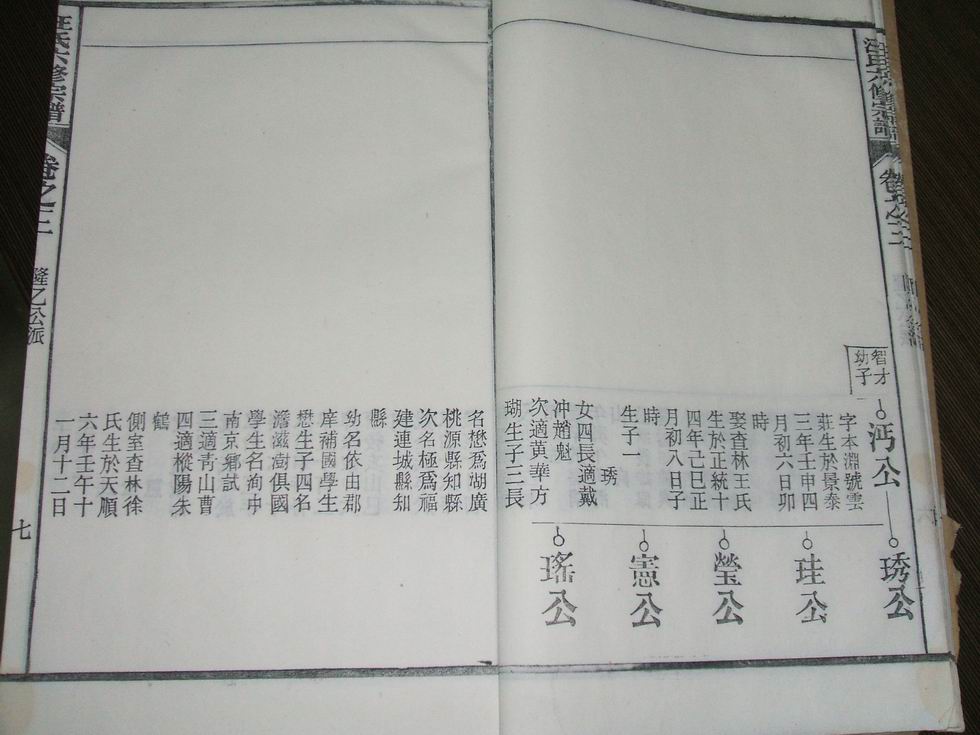 汪氏六修宗譜
卷之三
智才
幼子
沔公
字本淵號雲
莊生於景泰
三年壬申四
月初六日卯
時
娶查林王氏
生於正統十
四年己巳正
月初八日子
時
生子一
琇
女四長適戴
冲趙魁
次適黄華方
瑚生子三長
琇公
珪公
瑩公
憲公
瑤公
名懋爲湖廣
桃源縣知縣
次名極爲福
建連城縣知
縣
幼名依由郡
庠補國學生
懋生子四名
澹滋澍俱國
學生名洵中
南京鄉試
三適青山曹
四適樅陽朱
鶴
側室查林徐
氏生於天順
六年壬午十
一月十二日
汪氏六修宗譜
卷之三
隆乙公派
七